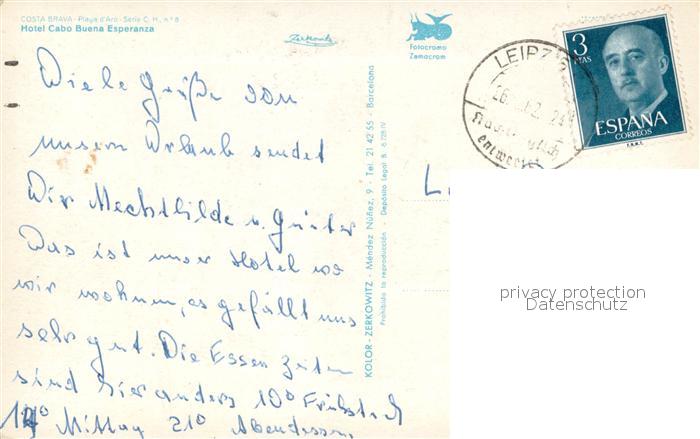 COSTA BRAVA - Playa d'Aro - Serie C. H., n.º 8
Hotel Cabo Buena Esperanza
Zerkowitz
Fotocromo
Zemacrom
3
PTAS
ESPAÑA
CORREOS
LEIPZIG
entwertet
Viele Grüße von
unserm Urlaub sendet
Dir Mechthilde u. Günter
Das ist unser Hotel wo
wir wohnen, es gefällt uns
sehr gut. Die Essen Zeiten
sind hier anders 10º Frühstück
14º Mittag 21º Abendessen.
KOLOR - ZERKOWITZ - Méndez Núñez, 9 - Tel. 21 42 55 - Barcelona
Prohibida la reproducción - Depósito Legal B. 6.728-IV
privacy protection
Datenschutz